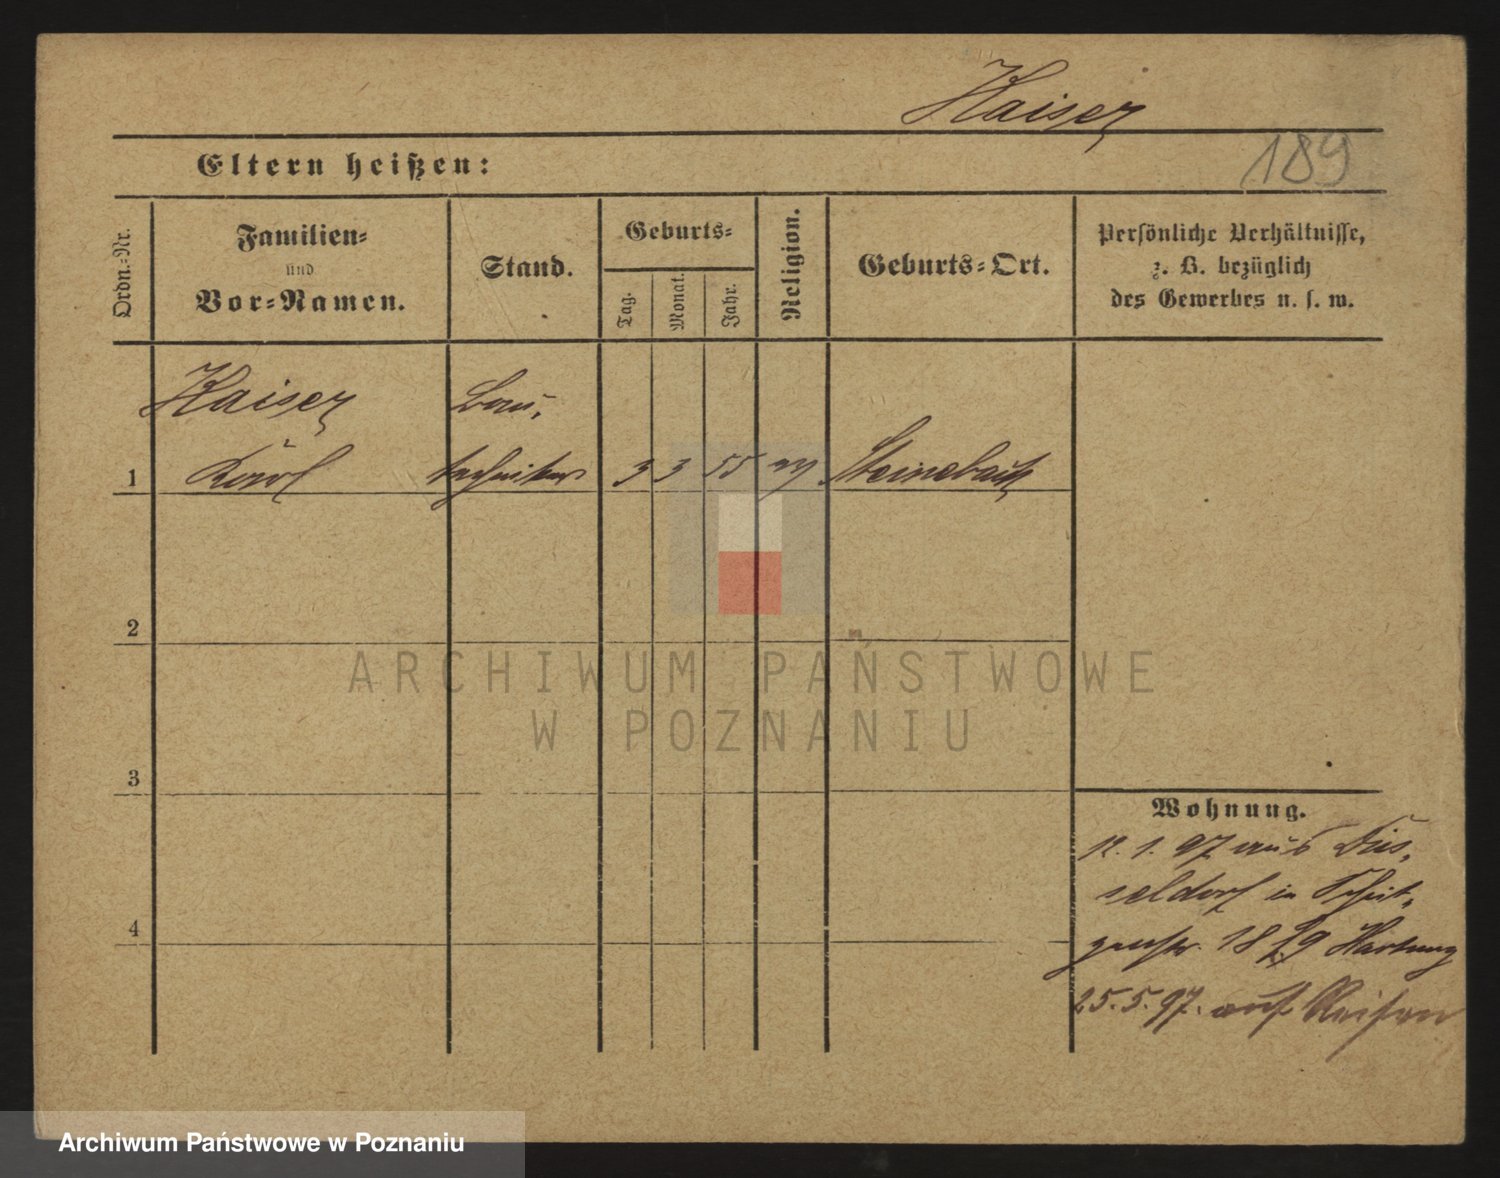 Kaiser
189
Eltern heißen:
Ordn.-Nr.
Familien-
und
Vor-Namen.
Stand.
Geburts-
Tag.
Monat.
Jahr.
Religion.
Geburts-Ort.
Persönliche Verhältnisse,
z. B. bezüglich
des Gewerbes u. s. w.
Kaiser Bau-
1 Karl techniker 3 3 55 Steinebach
2
3
4
Wohnung.
12. 1. 97 aus Düs-
seldorf in
18 Hartung
25. 5. 97. auf Reisen
ARCHIWUM PAŃSTWOWE
W POZNANIU
Archiwum Państwowe w Poznaniu